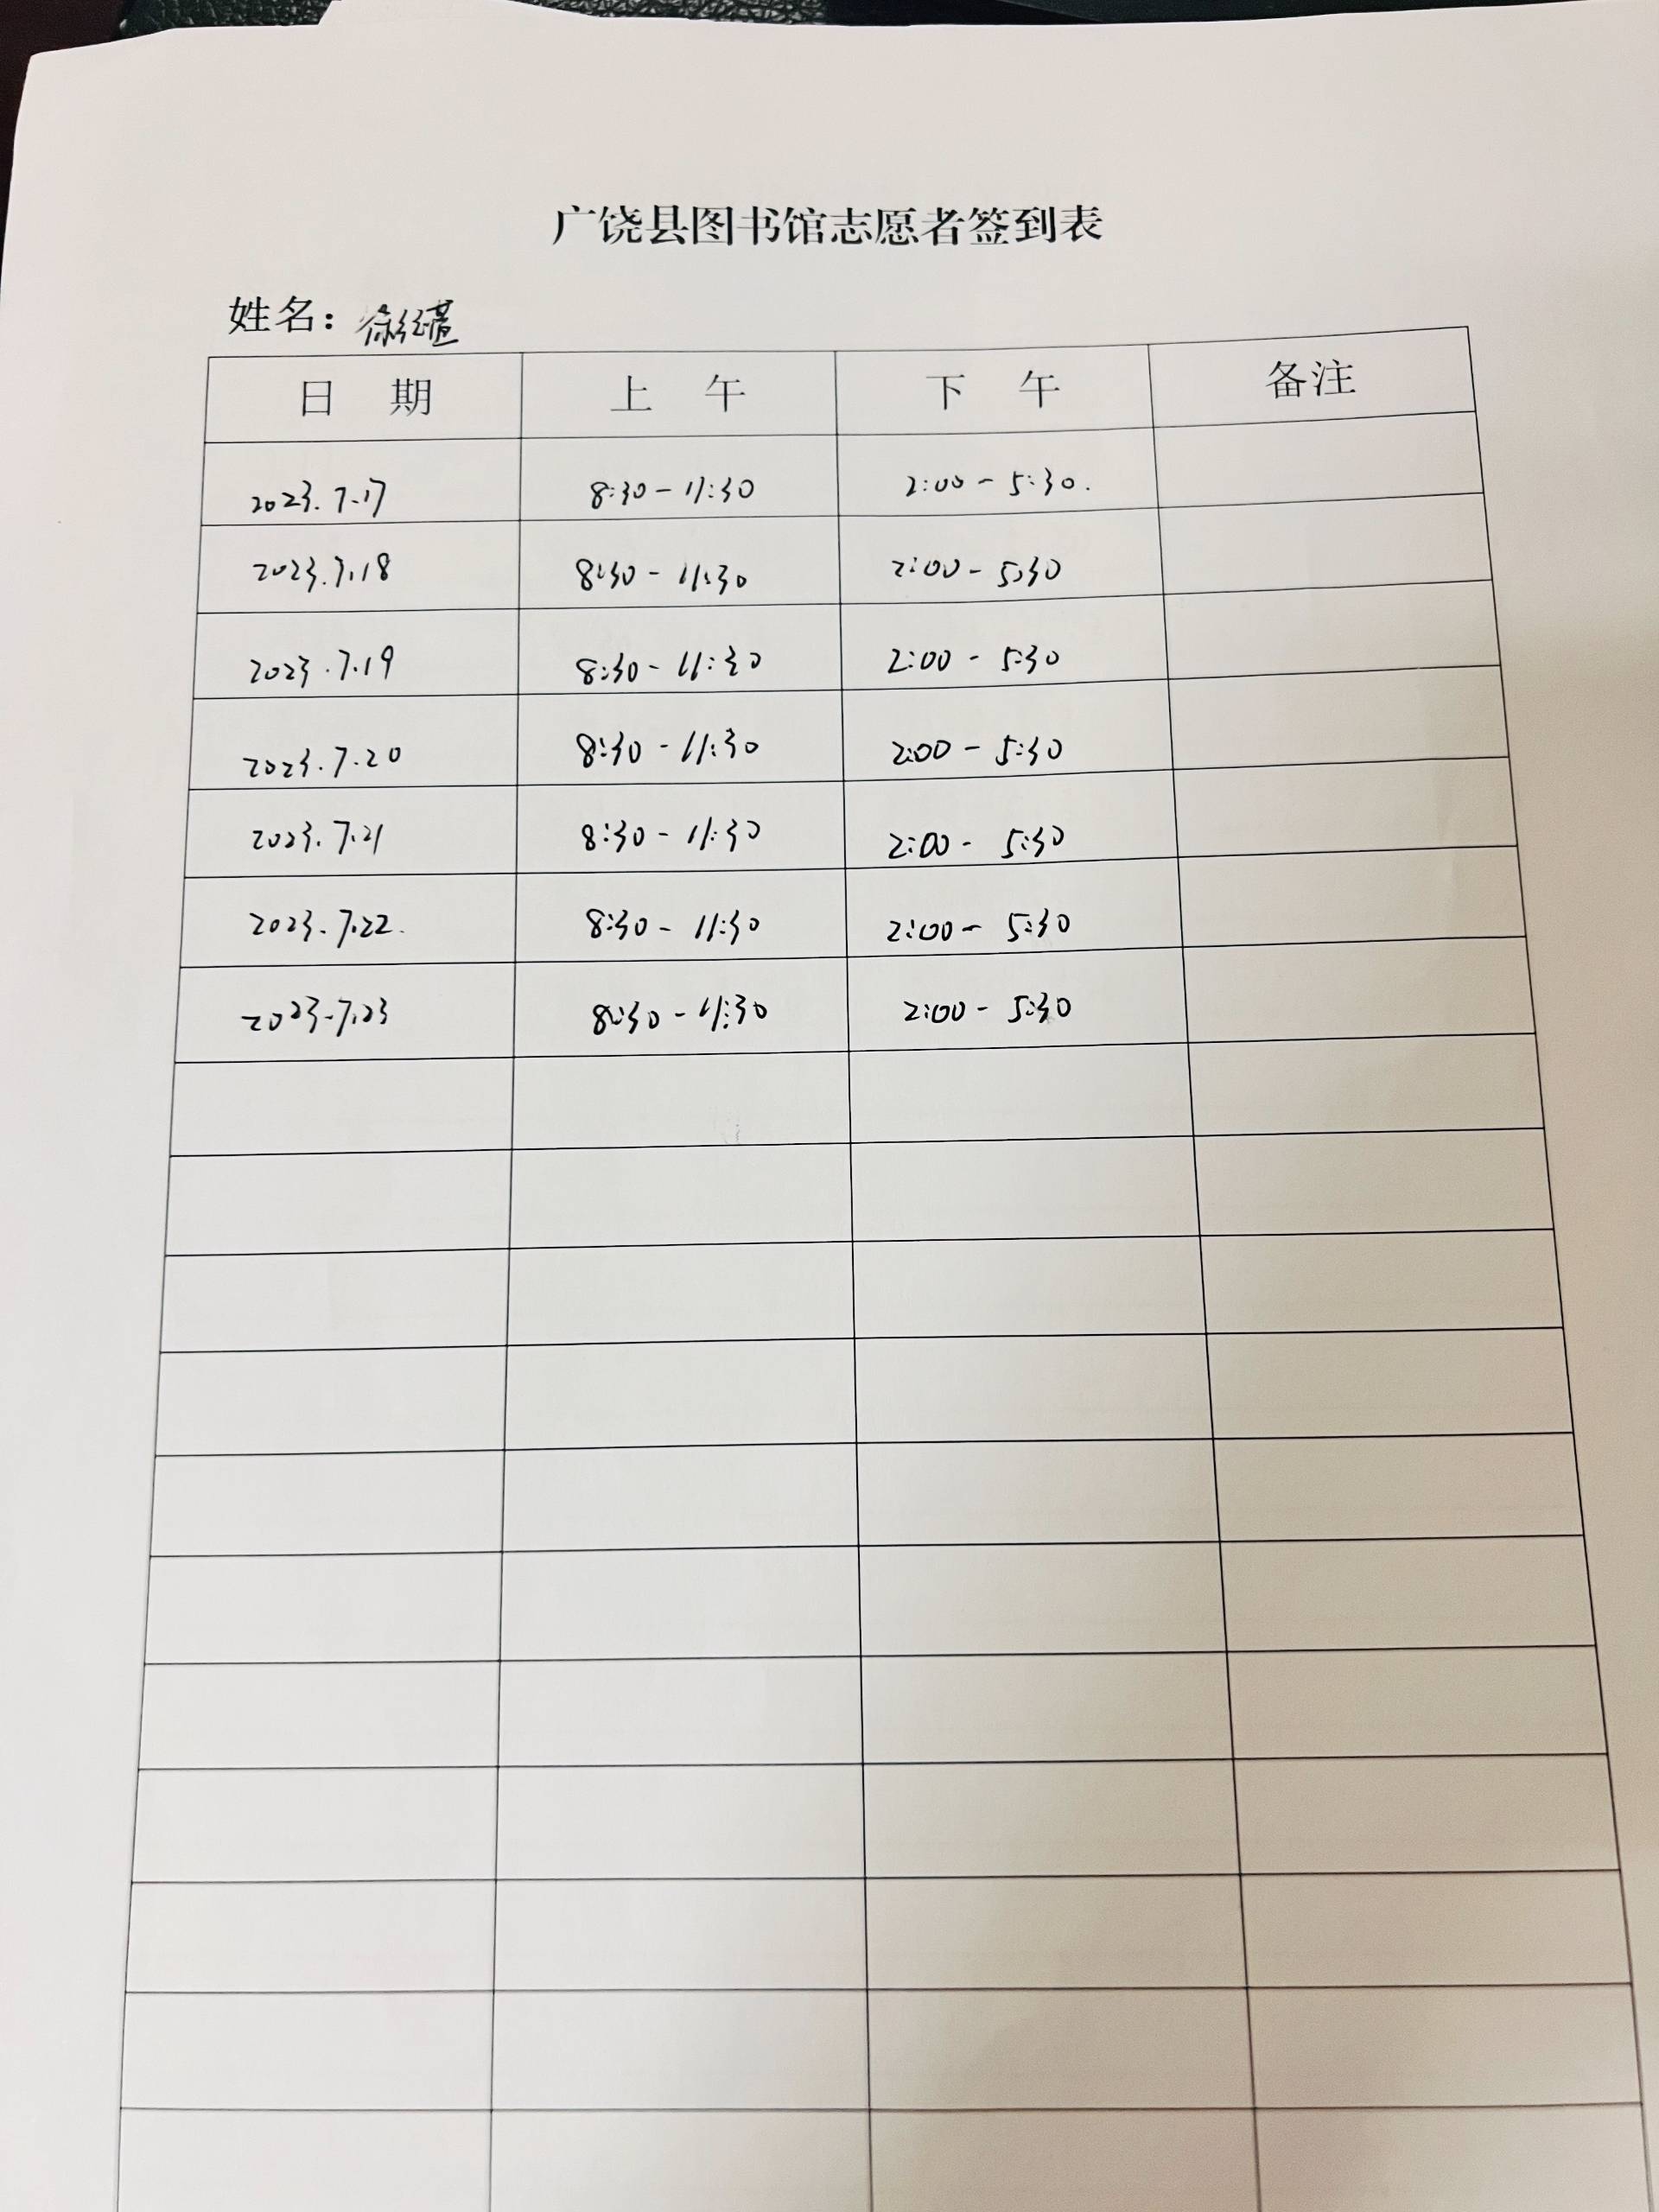 广饶县图书馆志愿者签到表
姓名：徐
日 期 上 午 下 午 备注
2023.7.17 8:30-11:30 2:00-5:30.
2023.7.18 8:30-11:30 2:00-5:30
2023.7.19 8:30-11:30 2:00-5:30
2023.7.20 8:30-11:30 2:00-5:30
2023.7.21 8:30-11:30 2:00-5:30
2023.7.22. 8:30-11:30 2:00-5:30
2023.7.23 8:30-11:30 2:00-5:30